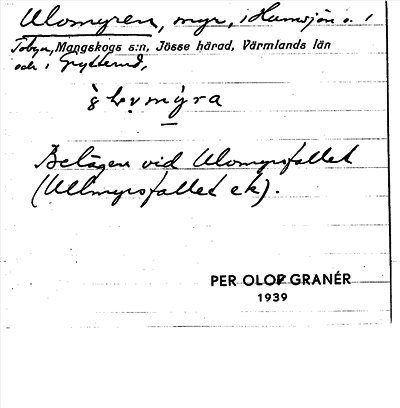 Ulomyren, myr, i Humsjön o. i
Tobyn, Mangskogs s:n, Jösse härad, Värmlands län
och i Grytterud,
Belägen vid Ulomyrsfallet
(Ullmyrsfallet ek).
PER OLOF GRANÉR
1939